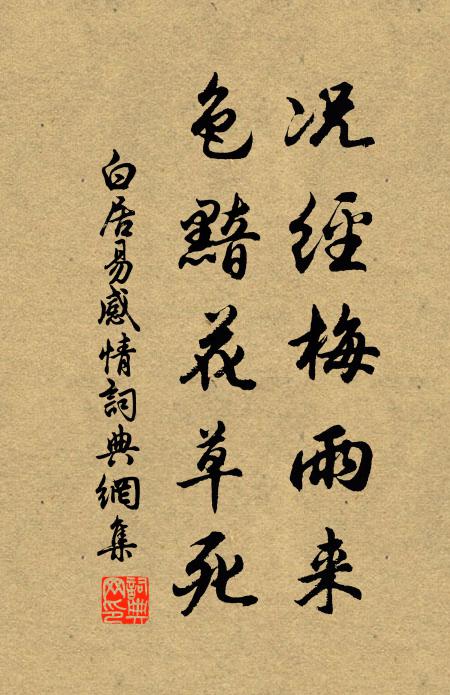 况經梅雨来
色黯花草死
白居易感情詞典網集
詞典
网印